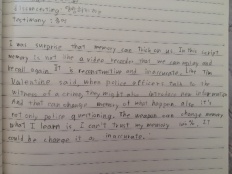 I was surprise that memory can trick us. In this script
memory is not like a video that we can replay and
recall again. It is reconstructive and inaccurate. Like Tim
Valentine said, when police officers talk to the
witness of a crime, they might introduce new information
And that can change memory of what happen. Also it's
not only police questioning. The weapon can change memory
What I learn is, I can't trust my memory 100% It
could be change it or inaccurate.